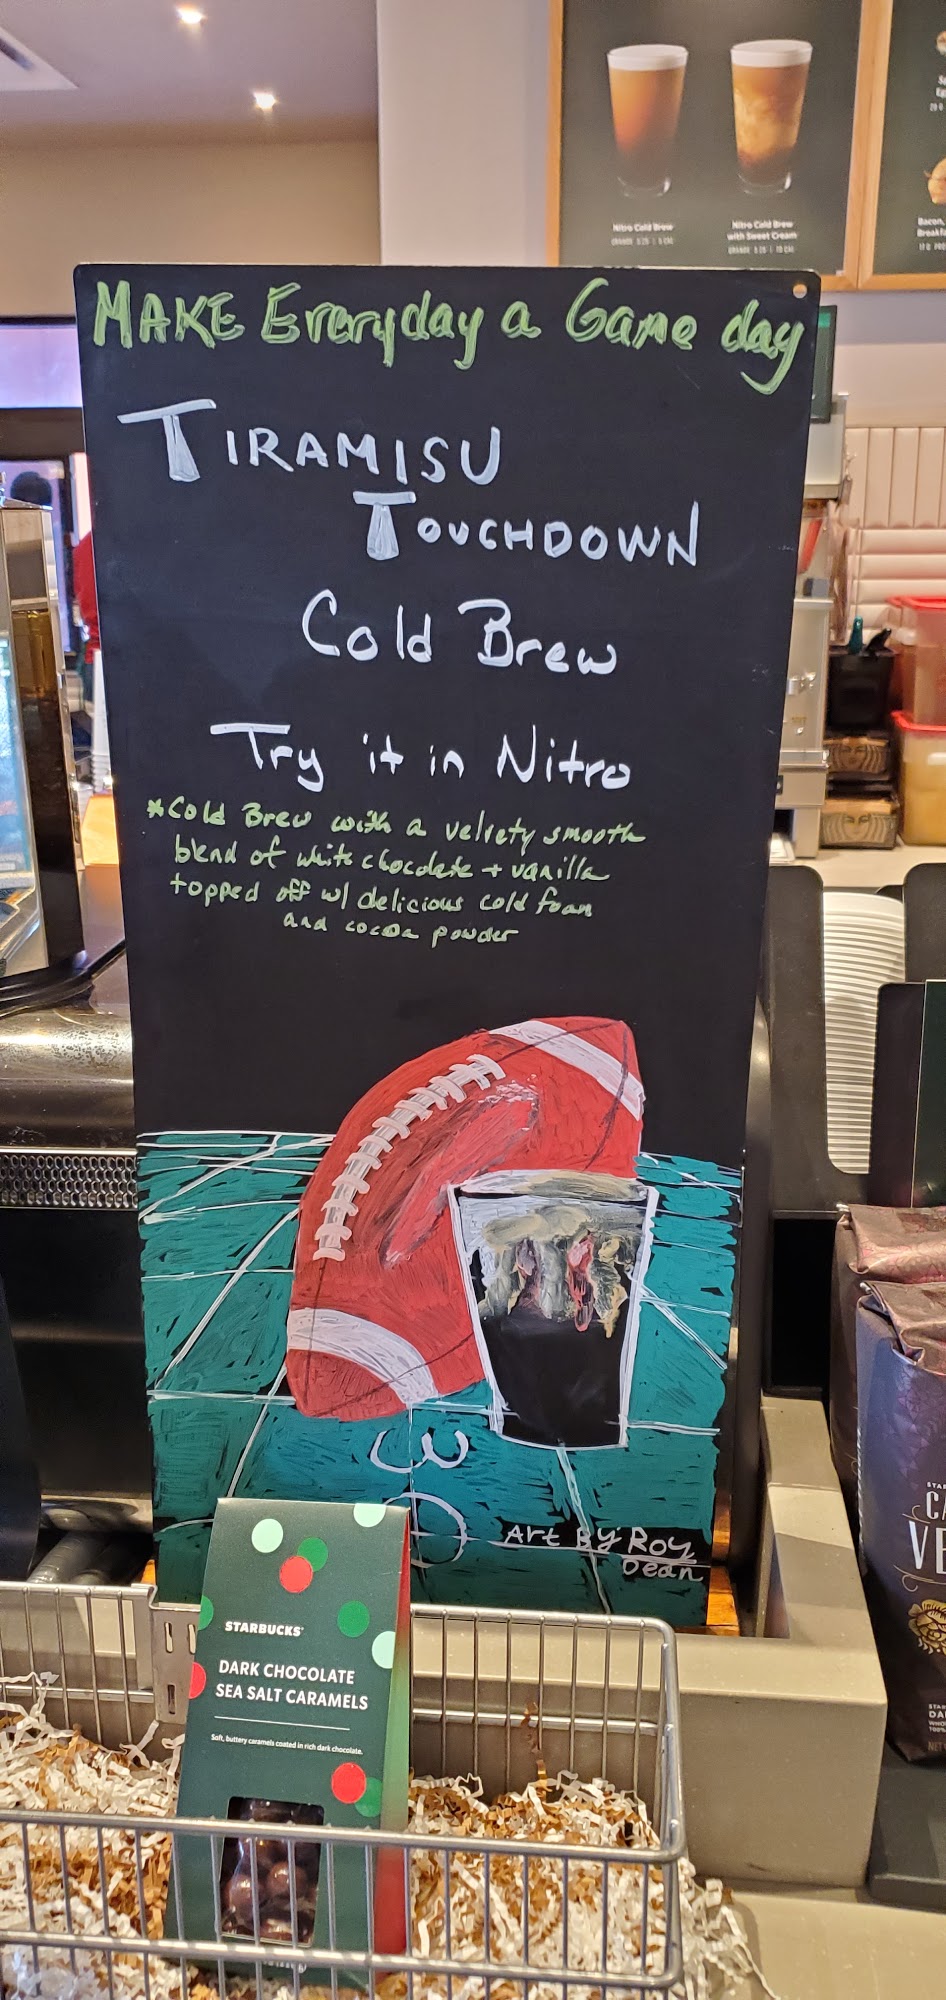 Nitro Cold Brew
Nitro Cold Brew
with Sweet Cream
Bacon,
MAKE Everyday a Game day
TIRAMISU
TOUCHDOWN
Cold Brew
Try it in Nitro
*Cold Brew with a velvety smooth
blend of white chocolate + vanilla
topped off w/ delicious cold foam
and cocoa powder
Art By Roy
Dean
STARBUCKS
DARK CHOCOLATE
SEA SALT CARAMELS
Soft, buttery caramels coated in rich dark chocolate.